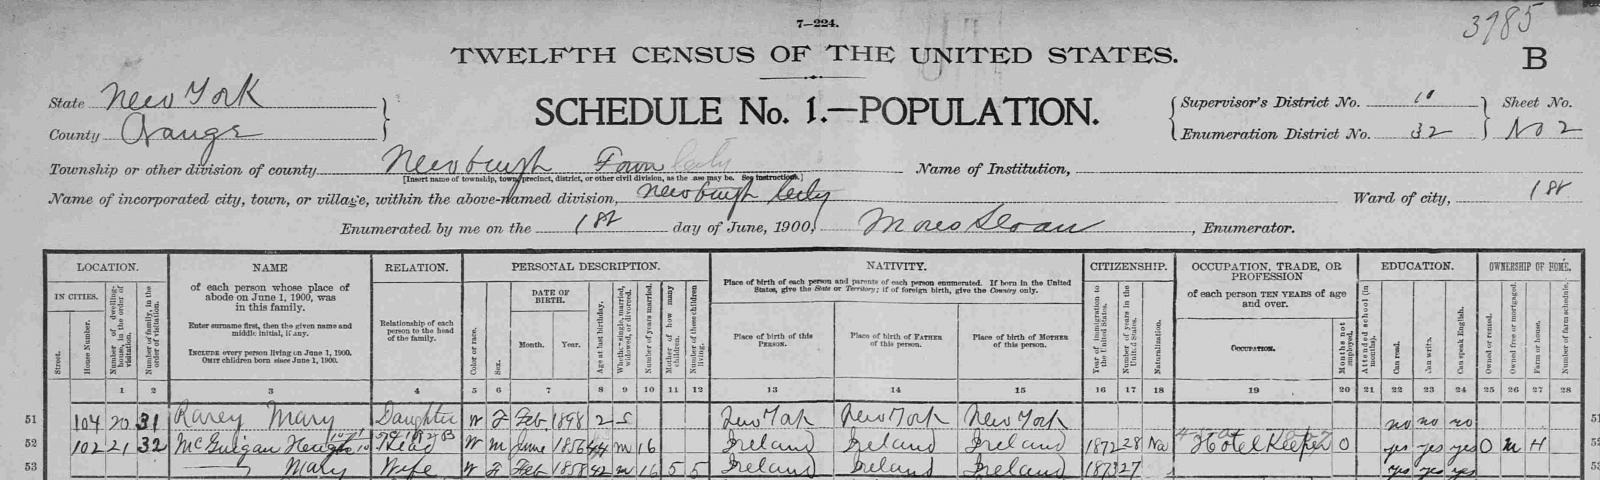 7—224.
3985
TWELFTH CENSUS OF THE UNITED STATES.
B
State New York
County Orange
SCHEDULE No. 1.—POPULATION.
Supervisor's District No. 10
Enumeration District No. 32
Sheet No.
No 2
Township or other division of county Newburgh Town City
[Insert name of township, town, precinct, district, or other civil division, as the case may be. See instructions.]
Name of Institution,
Name of incorporated city, town, or village, within the above-named division, Newburgh City
Ward of city, 1st
Enumerated by me on the 1st day of June, 1900, Moses Sloan, Enumerator.
LOCATION. NAME RELATION. PERSONAL DESCRIPTION. NATIVITY. CITIZENSHIP. OCCUPATION, TRADE, OR PROFESSION EDUCATION. OWNERSHIP OF HOME.
IN CITIES.
Street.
House Number.
Number of dwelling-house, in the order of visitation.
Number of family, in the order of visitation.
of each person whose place of abode on June 1, 1900, was in this family.
Enter surname first, then the given name and middle initial, if any.
INCLUDE every person living on June 1, 1900.
OMIT children born since June 1, 1900.
Relationship of each person to the head of the family.
Color or race.
Sex.
DATE OF BIRTH.
Month. Year.
Age at last birthday.
Whether single, married, widowed, or divorced.
Number of years married.
Mother of how many children.
Number of these children living.
Place of birth of each person and parents of each person enumerated. If born in the United States, give the State or Territory; if of foreign birth, give the Country only.
Place of birth of this PERSON.
Place of birth of FATHER of this person.
Place of birth of MOTHER of this person.
Year of immigration to the United States.
Number of years in the United States.
Naturalization.
of each person TEN YEARS of age and over.
OCCUPATION.
Months not employed.
Attended school (in months).
Can read.
Can write.
Can speak English.
Owned or rented.
Owned free or mortgaged.
Farm or house.
Number of farm schedule.
1 2 3 4 5 6 7 8 9 10 11 12 13 14 15 16 17 18 19 20 21 22 23 24 25 26 27 28
51 104 20 31 Rarey Mary Daughter W F Feb 1898 2 S New York New York New York no no no 51
52 102 21 32 McGuigan Head W M June 1856 44 M 16 Ireland Ireland Ireland 1872 28 Na Hotel Keeper 0 yes yes yes O M H 52
53 Mary Wife W F Feb 1858 42 M 16 5 5 Ireland Ireland Ireland 1873 27 yes yes yes 53